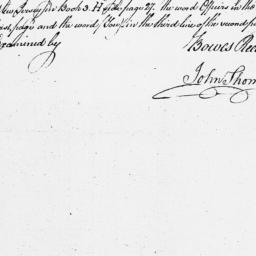 New Jersey Lib Book 3. H of the page 27. the word Offices in the
first page and the word (You) in the third line of the second p
Examined by
Bowes Ree
John Thom